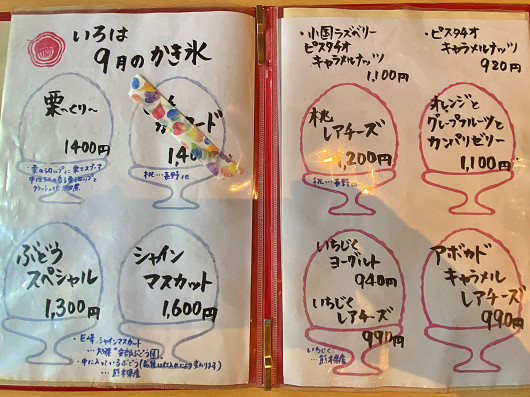 いろは
9月のかき氷
栗づくり〜
1400円
1,400円
桃…長野他
ぶどう
スペシャル
1,300円
シャイン
マスカット
1,600円
・巨峰、シャインマスカット
・中に入っているぶどう
…熊本県産
・小国ラズベリー
ピスタチオ
キャラメルナッツ
1,100円
・ピスタチオ
キャラメルナッツ
920円
桃
レアチーズ
1,200円
桃…長野
オレンジと
グレープフルーツと
カンパリゼリー
1,100円
いちじく
ヨーグルト
940円
いちじく
レアチーズ
990円
いちじく
…熊本県産
アボカド
キャラメル
レアチーズ
990円